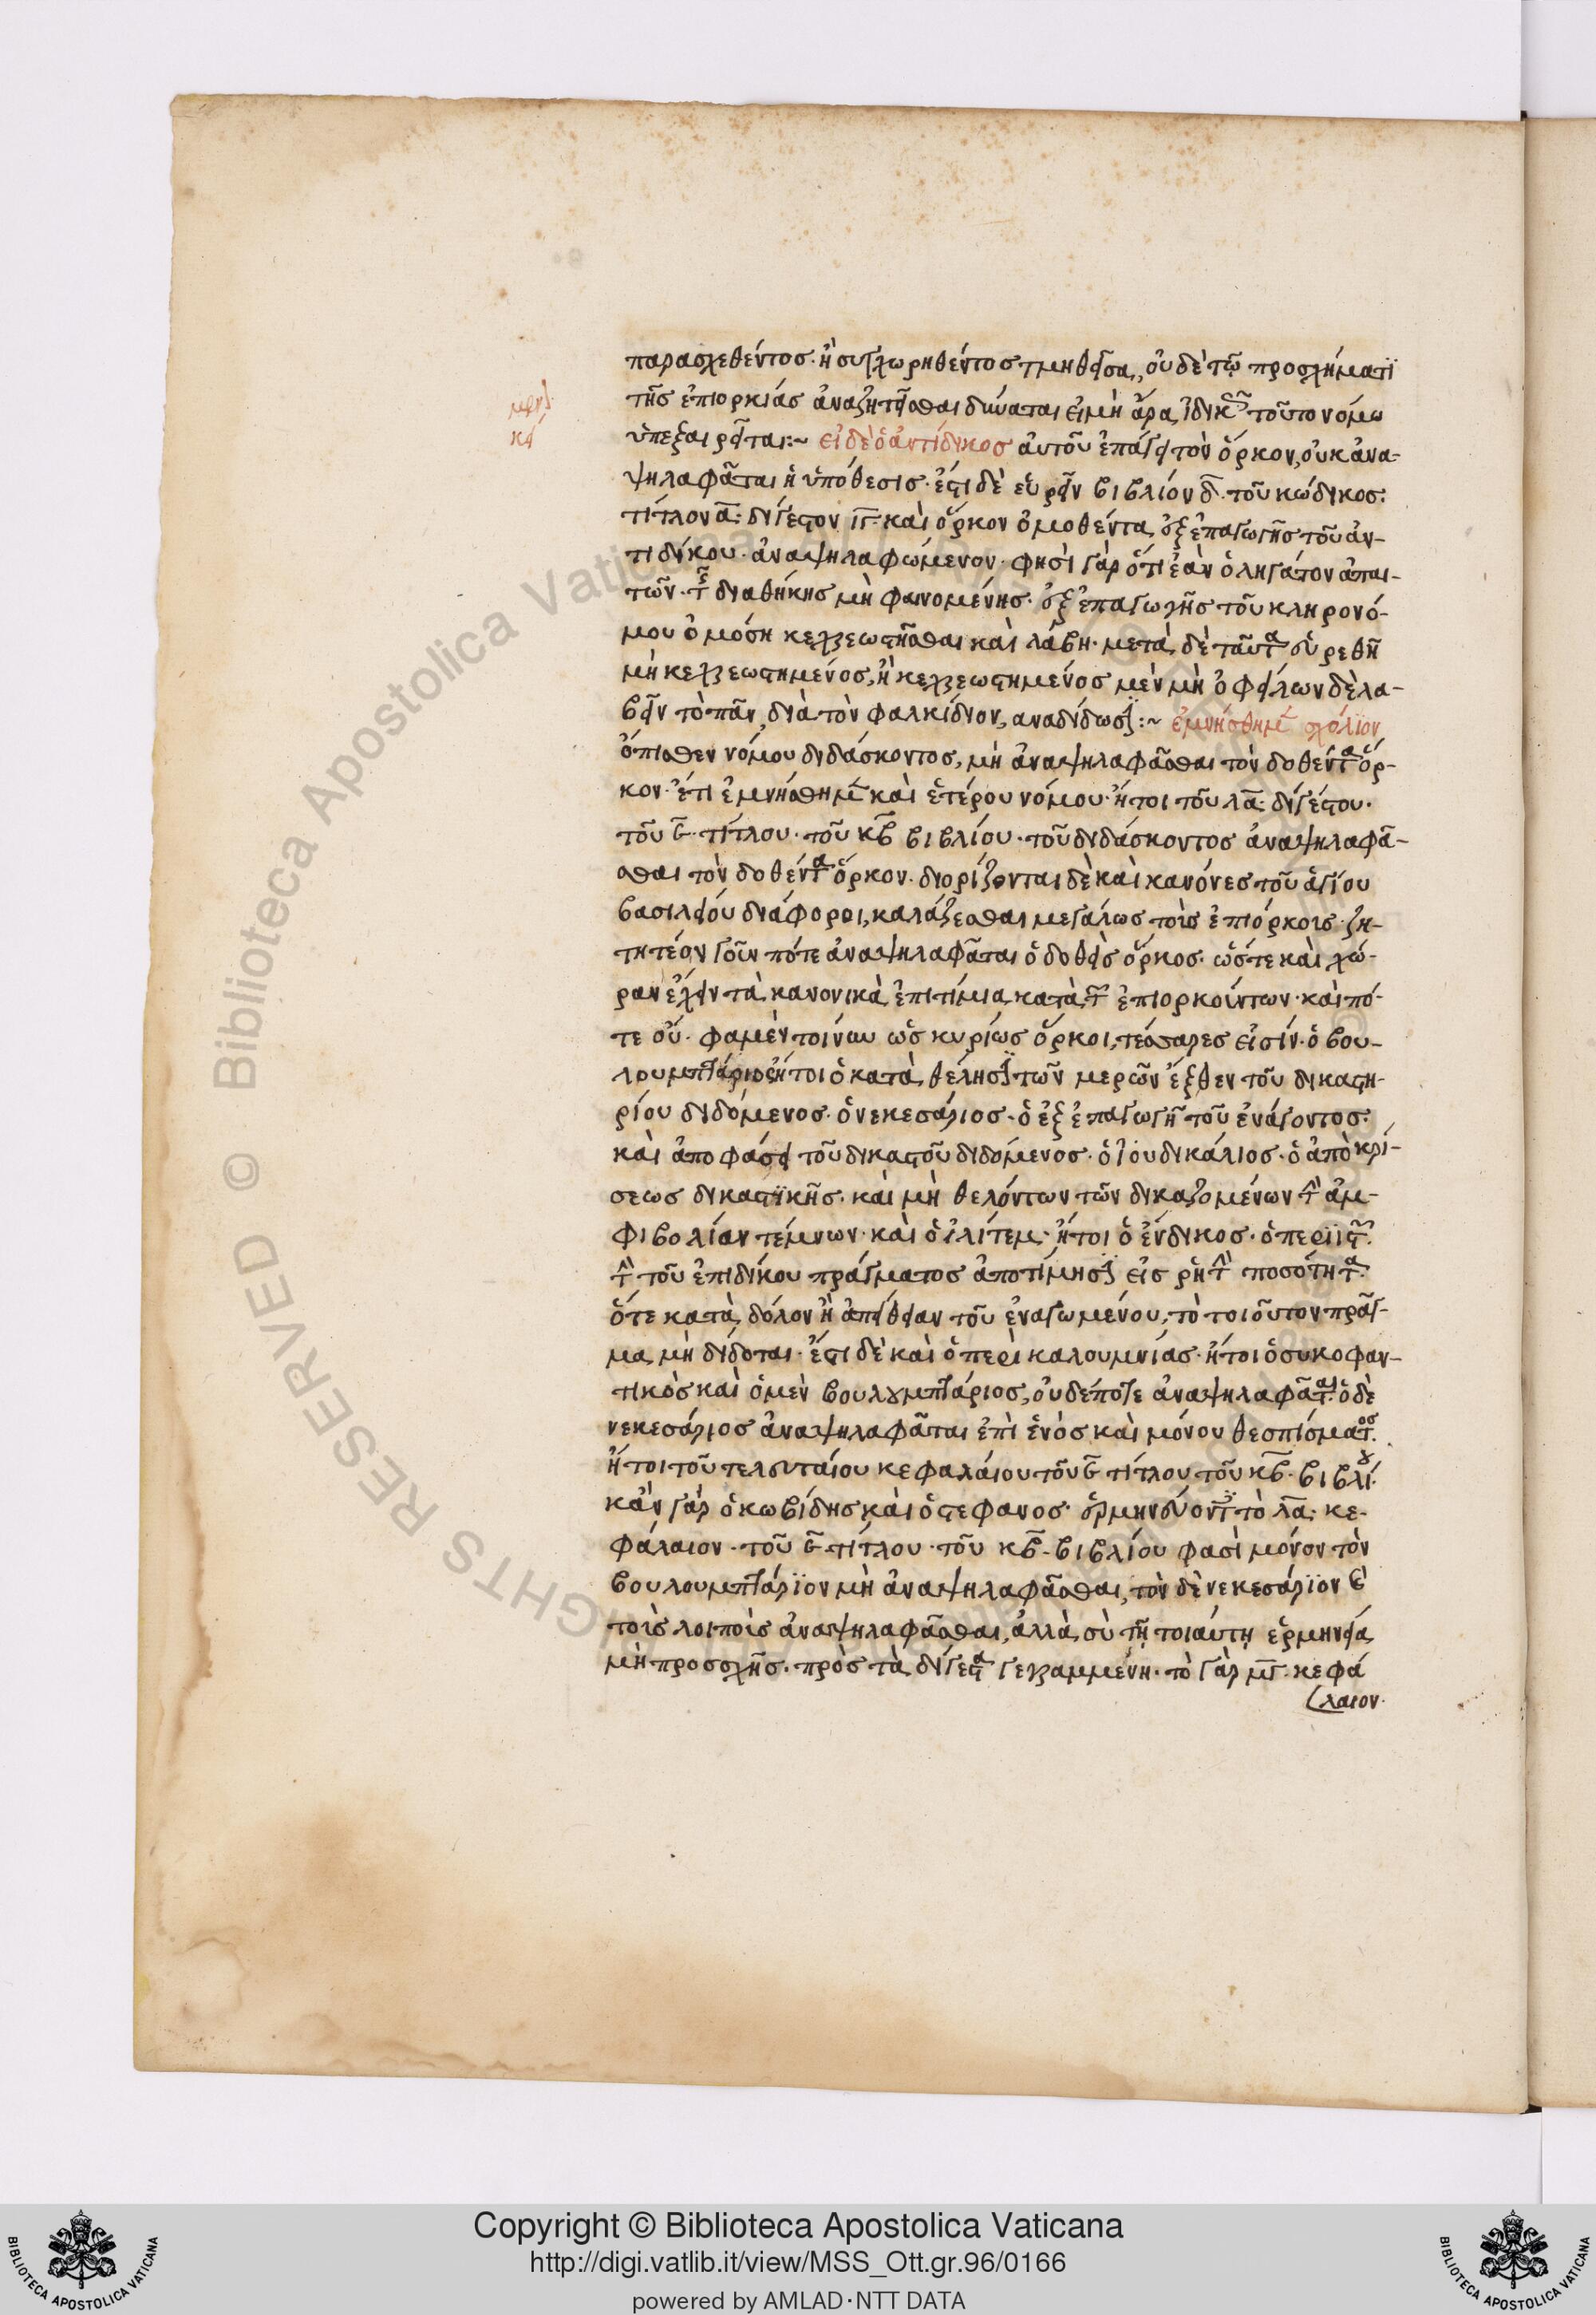 παρασχεθέντος· ἢ συγχωρηθέντος τμηθεῖσα, οὐδὲ τῶ προσχήματϊ
τῆς ἐπιορκιάς ἀναζητεῖσθαι δύναται εἰμὴ ἄρα ἰδικῶς τοῦτο νόμω
ὑπεξαιρεῖται:~ εἰ δὲ ὁ ἀντίδικος αὐτοῦ ἐπάγει τὸν ὅρκον, οὐκ ἀνα-
ψηλαφᾶται ἡ ὑπόθεσις· ἔστι δὲ εὑρεῖν βιβλίον δ̅. τοῦ κώδικος:
τίτλον α̅: δίγεστον ιγ̅· καὶ ὅρκον ὀμοθέντα ἐξ ἐπαγωγῆς τοῦ ἀν-
τιδίκου· ἀναψηλαφώμενον· φησὶ γὰρ ὅτι ἐὰν ὁ ληγάτον ἀπαι-
τῶν· τῆς διαθήκης μὴ φαινομένης· ἐξ ἐπαγωγῆς τοῦ κληρονό-
μου ὀμόση κεχρεωστῆσθαι καὶ λάβη· μετὰ δὲ ταῦτα εὑρεθῆ
μὴ κεχρεωστημένος, ἢ κεχρεωστημένος μὲν μὴ ὀφείλων δὲ λα-
βεῖν τὸ πᾶν, διὰ τὸν φαλκίδιον, αναδίδωσϊ:~ ἐμνήσθημεν σχόλϊον
ὄπισθεν νόμου διδάσκοντος, μὴ ἀναψηλαφᾶσθαι τὸν δοθέντα ὅρ-
κον· ἔτι ἐμνήσθημεν καὶ ἑτέρου νόμου· ἤτοι τοῦ λα̅: διγέστου·
τοῦ ϛ̅· τίτλου· τοῦ κβ̅ βιβλίου· τοῦ διδάσκοντος ἀναψηλαφᾶ-
σθαι τὸν δοθέντα ὅρκον· διορίζονται δὲ καὶ κανόνες τοῦ ἁγίου
βασιλείου διάφοροι, καλάζεσθαι μεγάλως τοῖς ἐπιόρκοις· ζη-
τητέον γοῦν πότε ἀναψηλαφᾶται ὁ δοθεὶς ὅρκος· ὥστε καὶ χώ-
ραν ἔχειν τὰ κανονικὰ ἐπιτίμια κατὰ τῶν ἐπιορκούντων· καὶ πό-
τε οὔ· φαμὲν τοίνυν ὡς κυρίως ὅρκοι, τέσσαρες εἰσίν· ὁ βου-
λουμπτάριος ἤτοι ὁ κατὰ θέλησϊν τῶν μερῶν ἔξθεν τοῦ δικαστη-
ρίου διδόμενος· ὁ νεκεσάριος· ὁ ἐξ ἐπαγωγῆ τοῦ ἐνάγοντος·
καὶ ἀποφάσει τοῦ δικαστοῦ διδόμενος· ὁ ἰουδικάλιος· ὁ ἀπὸ κρί-
σεως δικαστϊκῆς· καὶ μὴ θελόντων τῶν δικαζομένων τὴν ἀμ-
φιβολίαν τέμνων· καὶ ὁ ἰλίτεμ· ἤτοι ὁ ἔνδικος· ὁ περϊϊστῶν
τὴν τοῦ ἐπιδίκου πράγματος ἀποτίμησϊν εἰς ρητὴν ποσότητα·
ὅτε κατὰ δόλον ἢ ἀπείθειαν τοῦ ἐναγωμένου, τὸ τοιοῦτον πρᾶγ-
μα μὴ δίδοται· ἔστι δὲ καὶ ὁ περὶ καλουμνίας· ἤτοι ὁ συκοφαν-
τικὸς καὶ ὁ μὲν βουλουμπτάριος, οὐδέποτε ἀναψηλαφᾶται· ὁ δὲ
νεκεσάριος ἀναψηλαφᾶται ἐπὶ ἑνὸς καὶ μόνου θεσπίσματος·
ἤτοι τοῦ τελευταίου κεφαλάιου τοῦ ϛ̅ τίτλου τοῦ κβ̅· βιβλίου·
κἂν γὰρ ὁ κωβίδης καὶ ὁ στέφανος· ἑρμηνεύοντϊ τὸ λα̅: κε-
φάλαιον· τοῦ ϛ̅ τίτλου· τοῦ κβ̅· βιβλίου φασὶ μόνον τὸν
βουλουμπτάρϊον μὴ ἀναψηλαφᾶσθαι, τὸν δὲ νεκεσάρϊον ἐν
τοῖς λοιποῖς ἀναψηλαφᾶσθαι, ἀλλὰ σὺ τῆ τοιαύτη ἑρμηνεία
μὴ προσσχῆς· πρὸς τὰ δίγεστα γεγραμμένη· τὸ γὰρ μγ̅· κεφά
λαιον·
Copyright © Biblioteca Apostolica Vaticana
http://digi.vatlib.it/view/MSS_Ott.gr.96/0166
powered by AMLAD·NTT DATA
BIBLIOTECA APOSTOLICA VATICANA
BIBLIOTECA APOSTOLICA VATICANA
RIGHTS RESERVED © Biblioteca Apostolica Vaticana